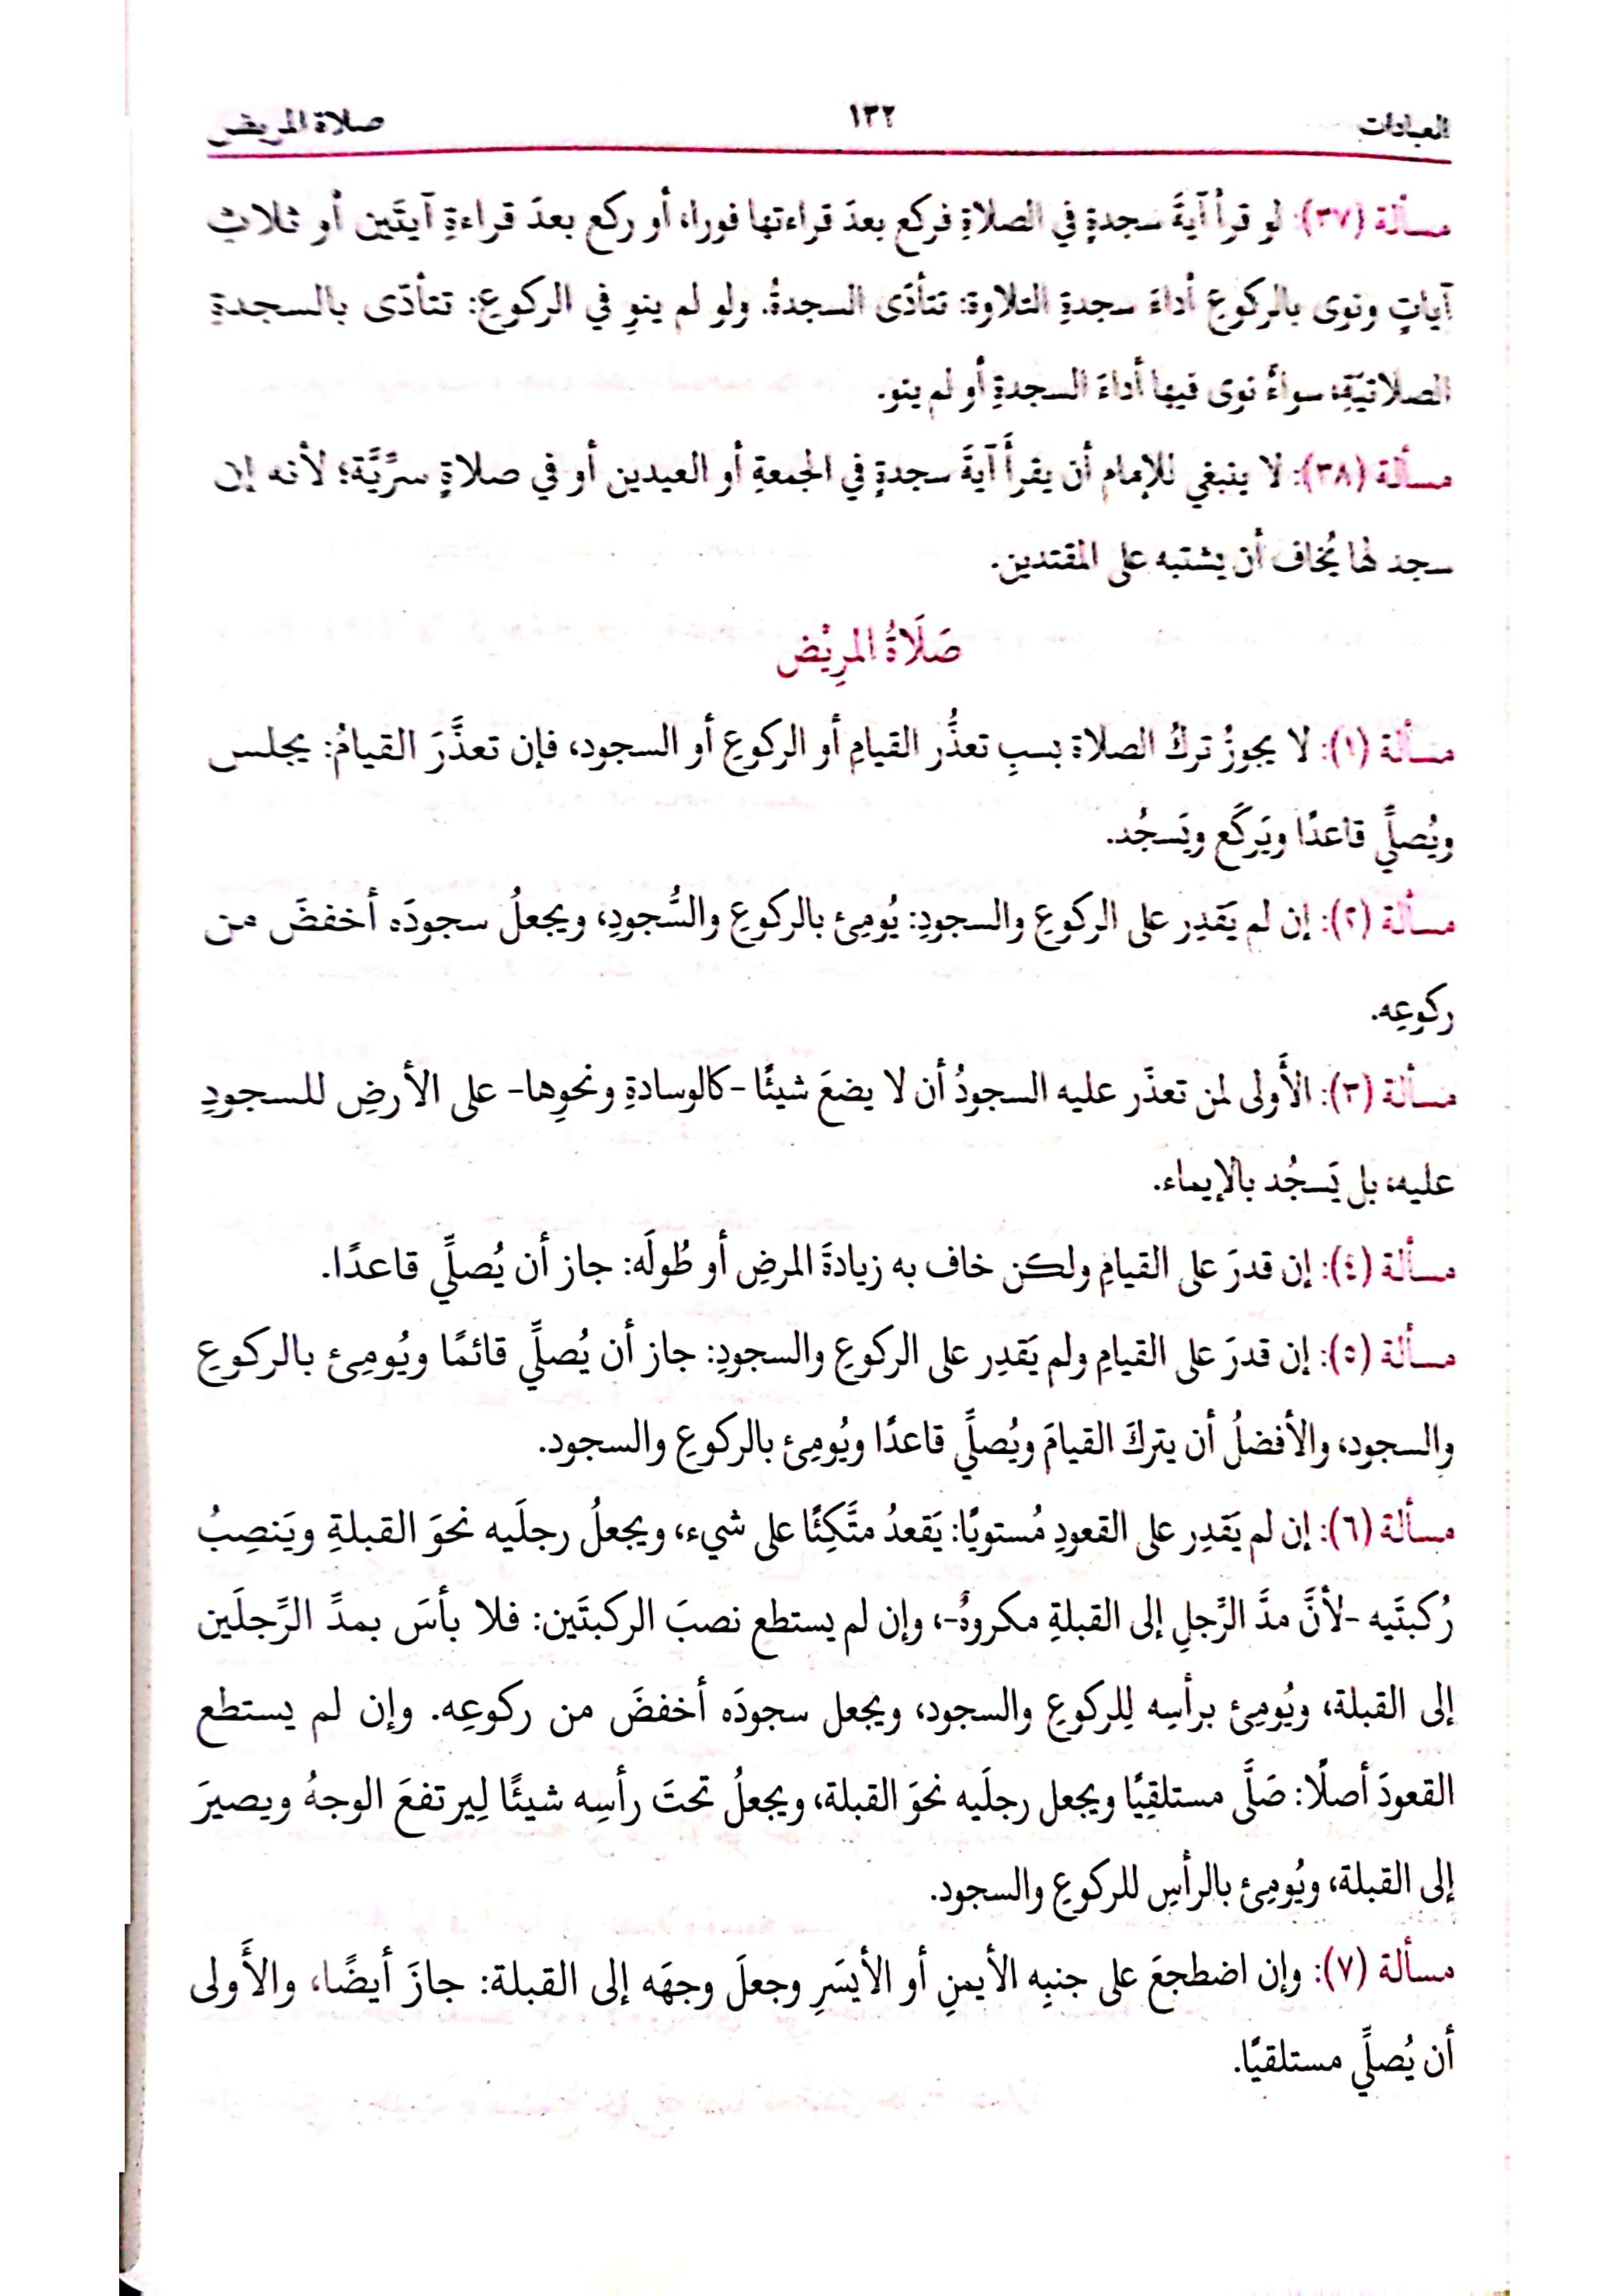 العبادات ١٣٢ صلاة المريض
مسألة (٣٧): لو قرأ آيةَ سجدةٍ في الصلاةِ فركع بعدَ قراءتها فورا، أو ركع بعدَ قراءةِ آيتَين أو ثلاثِ
آياتٍ ونوى بالركوعِ أداءَ سجدةِ التلاوة: تتأدّى السجدةُ. ولو لم ينوِ في الركوعِ: تتأدّى بالسجدةِ
الصلاتيّةِ، سواءً نوى فيها أداءَ السجدةِ أو لم ينو.
مسألة (٣٨): لا ينبغي للإمام أن يقرأَ آيةَ سجدةٍ في الجمعةِ أو العيدين أو في صلاةٍ سرِّيَّة؛ لأنه إن
سجد لها يُخاف أن يشتبه على المقتدين.
صَلَاةُ المرِيْض
مسألة (١): لا يجوزُ تركُ الصلاة بسبِ تعذُّر القيامِ أو الركوعِ أو السجود، فإن تعذَّرَ القيامُ: يجلس
ويُصلِّي قاعدًا ويَركَع ويَسجُد.
مسألة (٢): إن لم يَقدِر على الركوعِ والسجودِ: يُومِئ بالركوعِ والسُّجودِ، ويجعلُ سجودَه أخفضَ من
ركوعِه.
مسألة (٣): الأَولى لمن تعذّر عليه السجودُ أن لا يضعَ شيئًا -كالوسادةِ ونحوِها- على الأرضِ للسجودِ
عليه، بل يَسجُد بالإيماء.
مسألة (٤): إن قدرَ على القيامِ ولكن خاف به زيادةَ المرضِ أو طُولَه: جاز أن يُصلِّي قاعدًا.
مسألة (٥): إن قدرَ على القيامِ ولم يَقدِر على الركوعِ والسجودِ: جاز أن يُصلِّي قائمًا ويُومِئ بالركوعِ
والسجود، والأفضلُ أن يتركَ القيامَ ويُصلِّي قاعدًا ويُومِئ بالركوعِ والسجود.
مسألة (٦): إن لم يَقدِر على القعودِ مُستويًا: يَقعدُ متَّكِئًا على شيء، ويجعلُ رجلَيه نحوَ القبلةِ ويَنصِبُ
رُكبتَيه -لأنَّ مدَّ الرِّجلِ إلى القبلةِ مكروهٌ-، وإن لم يستطع نصبَ الركبتَين: فلا بأسَ بمدِّ الرِّجلَين
إلى القبلة، ويُومِئ برأسِه لِلركوعِ والسجود، ويجعل سجودَه أخفضَ من ركوعِه. وإن لم يستطع
القعودَ أصلًا: صَلَّى مستلقِيًا ويجعل رجلَيه نحوَ القبلة، ويجعلُ تحتَ رأسِه شيئًا لِيرتفعَ الوجهُ ويصيرَ
إلى القبلة، ويُومِئ بالرأسِ للركوعِ والسجود.
مسألة (٧): وإن اضطجعَ على جنبِه الأيمنِ أو الأيسَرِ وجعلَ وجهَه إلى القبلة: جازَ أيضًا، والأَولى
أن يُصلِّي مستلقيًا.